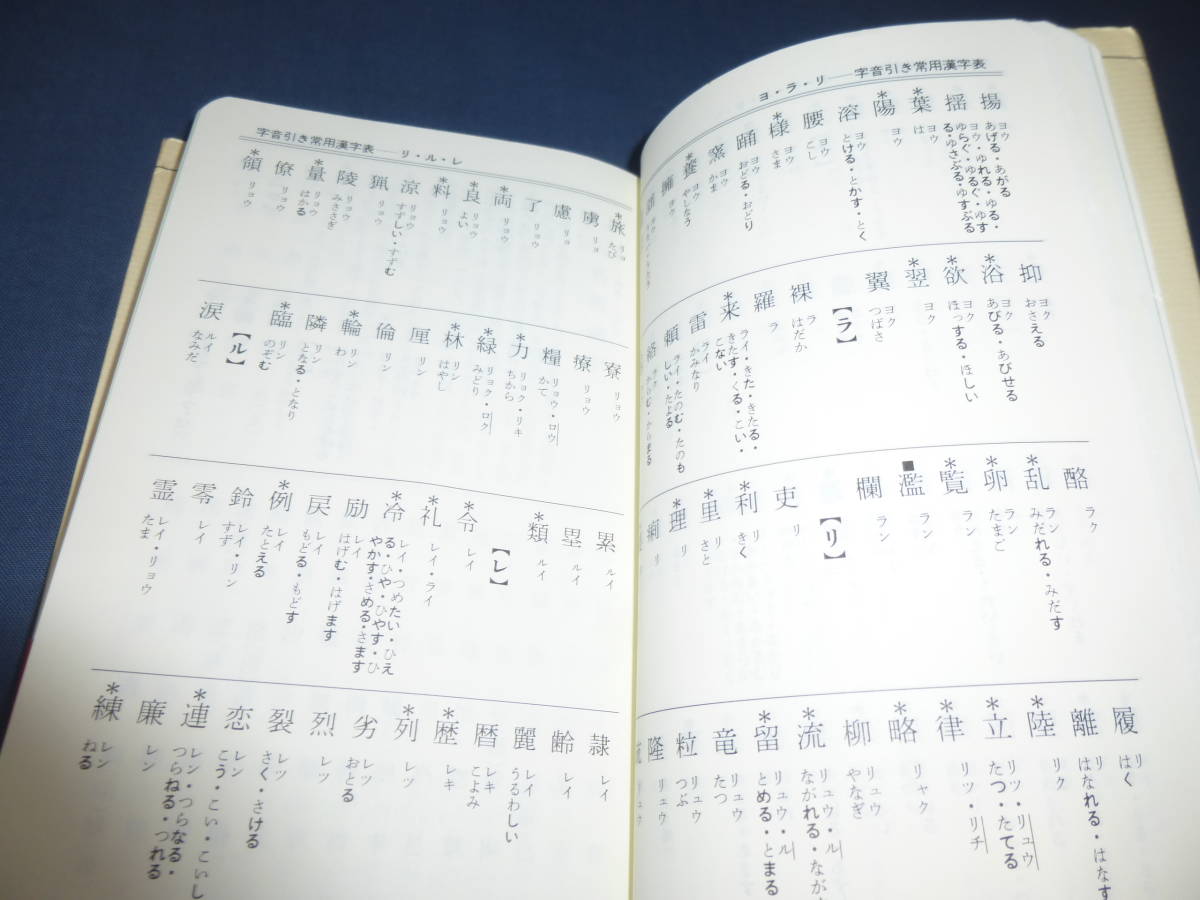 ヨ・ラ・リ――字音引き常用漢字表
揚 ヨウ あげる・あがる
揺 ヨウ・ゆれる・ゆる・ゆらぐ・ゆるぐ・ゆする・ゆさぶる・ゆすぶる
*葉 ヨウ は
*陽 ヨウ
溶 ヨウ とける・とかす・とく
腰 ヨウ こし
*様 ヨウ さま
踊 ヨウ おどる・おどり
窯 ヨウ かま
*養 ヨウ やしなう
擁 ヨウ
抑 ヨク おさえる
*浴 ヨク あびる・あびせる
*欲 ヨク ほっする・ほしい
*翌 ヨク
翼 ヨク つばさ
【ラ】
裸 ラ はだか
羅 ラ
*来 ライ・きた・きたる・きたす・くる・こい・こない
雷 ライ かみなり
頼 ライ・たのむ・たのもしい・たよる
絡 ラク からむ・からまる
酪 ラク
*乱 ラン みだれる・みだす
*卵 ラン たまご
*覧 ラン
■濫 ラン
欄 ラン
【リ】
吏 リ
*利 リ きく
*里 リ さと
*理 リ
痢 リ
履 リ はく
離 リ はなれる・はなす
*陸 リク
*立 リツ・リュウ たつ・たてる
*律 リツ・リチ
*略 リャク
柳 リュウ やなぎ
*流 リュウ・ル ながれる・なが
*留 リュウ・ル とめる・とまる
竜 リュウ たつ
粒 リュウ つぶ
隆 リュウ
字音引き常用漢字表――リ・ル・レ
*旅 リョ たび
虜 リョ
慮 リョ
了 リョウ
*両 リョウ
*良 リョウ よい
*料 リョウ
涼 リョウ すずしい・すずむ
猟 リョウ
陵 リョウ みささぎ
*量 リョウ はかる
僚 リョウ
*領 リョウ
寮 リョウ
療 リョウ
糧 リョウ・ロウ かて
*力 リョク・リキ ちから
*緑 リョク・ロク みどり
*林 リン はやし
厘 リン
倫 リン
*輪 リン わ
隣 リン となる・となり
*臨 リン のぞむ
【ル】
涙 ルイ なみだ
累 ルイ
塁 ルイ
*類 ルイ
【レ】
*令 レイ
*礼 レイ・ライ
*冷 レイ・つめたい・ひえる・ひや・ひやす・ひやかす・さめる・さます
励 レイ はげむ・はげます
戻 レイ もどる・もどす
*例 レイ たとえる
鈴 レイ・リン すず
零 レイ
霊 レイ・リョウ たま
隷 レイ
齢 レイ
麗 レイ うるわしい
暦 レキ こよみ
*歴 レキ
*列 レツ
劣 レツ おとる
烈 レツ
裂 レツ さく・さける
恋 レン こう・こい・こいし
*連 レン・つらなる・つらねる・つれる
廉 レン
*練 レン ねる